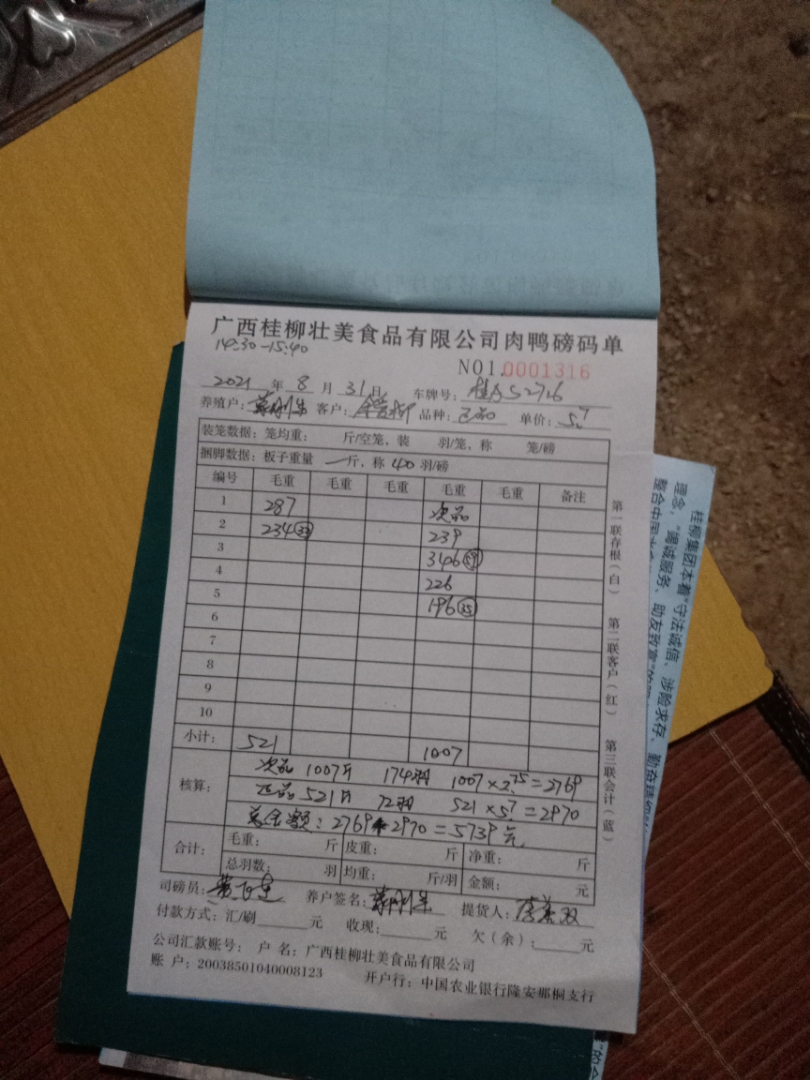 广西桂柳壮美食品有限公司肉鸭磅码单
14:30-15:40
NO1.0001316
2021年8月31日 车牌号: 52726
养殖户: 客户: 品种:正品 单价:5.7
装笼数据:笼均重: 斤/空笼,装 羽/笼,称 笼/磅
捆脚数据:板子重量 斤,称 40 羽/磅
编号 毛重 毛重 毛重 毛重 毛重 备注
1 287 次品
2 234(32) 239
3 346(59)
4 226
5 196(35)
6
7
8
9
10
小计: 521 1007
核算: 次品 1007斤 174羽 1007×2.75=2769
正品 521斤 72羽 521×5.7=2970
总金额:2769+2970=5739元
合计: 毛重: 斤 皮重: 斤 净重: 斤
总羽数: 羽 均重: 斤/羽 金额: 元
司磅员: 养户签名: 提货人:
付款方式:汇/刷 元 收现: 元 欠(余): 元
公司汇款账号: 户 名:广西桂柳壮美食品有限公司
账 户:20038501040008123 开户行:中国农业银行隆安那桐支行
第一联存根(白) 第二联客户(红) 第三联会计(蓝)
桂柳集团本着“守法诚信、涉险求存、勤奋
理念,“竭诚服务,助友致富”的
整合中国